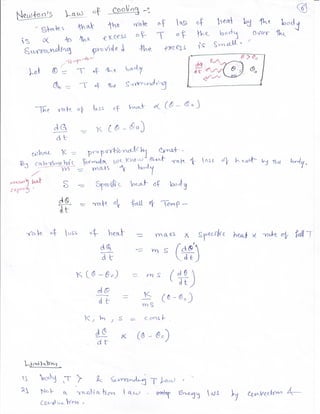 Newton's Law of Cooling -:
6
"States that the rate of loss of heat by the body
is ∝ to the excess of T of the body over the
Surrounding provided the excess is small."
Let θ = T of the body
θ > θ₀
θ₀ = T of the Surrounding
dQ/dt
θ
θ₀
The rate of loss of heat ∝ (θ - θ₀)
dQ/dt = K (θ - θ₀)
where K = proportionality Const.
By calorimetric formula we know that rate of loss of heat by the body,
m = mass of body
S = Specific heat of body
dθ/dt = rate of fall of Temp -
rate of loss of heat = mass x Specific heat x rate of fall T
dQ/dt = m s (dθ/dt)
K (θ - θ₀) = m s (dθ/dt)
dθ/dt = K/ms (θ - θ₀)
K, m, s = const
dθ/dt ∝ (θ - θ₀)
Limitation
1) body T > & Surrounding T Low.
2) Not a radiation law. Energy loss by Convection &
Conduction.